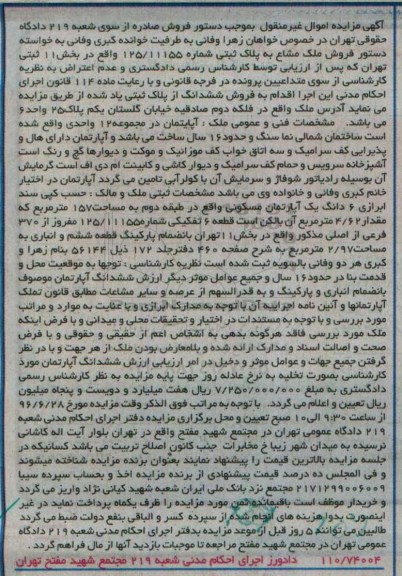 آگهی مزایده اموال غیرمنقول بموجب دستور فروش صادره از سوی شعبه ۲۱۹ دادگاه
حقوقی تهران در خصوص خواهان زهرا وفائی به طرفیت خوانده کبری وفائی به خواسته
دستور فروش ملک مشاع به پلاک ثبتی شماره ۱۲۵/۱۱۱۵۵ واقع در بخش۱۱ ثبتی
تهران که پس از ارزیابی توسط کارشناس رسمی دادگستری و عدم اعتراض به نظریه
کارشناسی از سوی متداعیین پرونده در فرجه قانونی و با رعایت ماده ۱۱۴ قانون اجرای
احکام مدنی این اجرا اقدام به فروش ششدانگ از پلاک ثبتی یاد شده از طریق مزایده
می نماید آدرس ملک واقع در فلکه دوم صادقیه خیابان گلستان یکم پلاک۲۵ واحد۶
می باشد. مشخصات فنی و عمومی ملک : آپارتمان در مجموعه۱۲ واحدی واقع شده
است ساختمان شمالی نما سنگ و حدود۱۶ سال ساخت می باشد و آپارتمان دارای هال و
پذیرایی کف سرامیک و سه اتاق خواب کف موزائیک و موکت و دیوارها گچ و رنگ است
آشپزخانه سرویس و حمام کف سرامیک و دیوار کاشی و کابینت ام دی اف است گرمایش
آن بوسیله رادیاتور شوفاژ و سرمایش آن با کولرآبی تامین می گردد آپارتمان در اختیار
خانم کبری وفائی و خانواده وی می باشد مشخصات ثبتی ملک و مالک : حسب کپی سند
ابرازی ۶ دانگ یک آپارتمان مسکونی واقع در طبقه دوم به مساحت۱۵۷ مترمربع که
مقدار۴/۶۲ مترمربع آن بالکن است قطعه ۶ تفکیکی شماره۱۲۵/۱۱۱۵۵ مفروز از ۳۷۰
فرعی از اصلی مذکور واقع در بخش۱۱تهران بانضمام پارکینگ قطعه ششم و انباری به
مساحت۲/۹۷ مترمربع به شرح صفحه ۴۶۰ دفترجلد ۱۷۲ ذیل ۵۶۱۴۴ بنام زهرا و
کبری هر دو وفائی بالسویه ثبت شده است نظریه کارشناسی : توجها به موقعیت محل و
قدمت بنا در حدود۱۶ سال و جمیع عوامل موثر دیگر ارزش ششدانگ آپارتمان موصوف
بانضمام انباری و پارکینگ و به قدرالسهم از عرصه و سایر مشاعات مطابق قانون تملک
آپارتمانها و آئین نامه اجراییه آن با توجه به مدارک ابرازی و با عنایت به موارد و مراتب
مورد بررسی و با توجه به مستندات در اختیار و تحقیقات محلی و میدانی و با فرض اینکه
ملک مورد بررسی فاقد هرگونه بدهی به اشخاص اعم از حقیقی و حقوقی و با فرض
صحت و اصالت اسناد و مدارک ارائه شده و بلامعارض بودن ملک از هر جهت و با در نظر
گرفتن جمیع جهات و عوامل موثر و دخیل در امر ارزیابی ارزش ششدانگ آپارتمان مورد
کارشناسی بصورت تخلیه به نرخ عادله روز جهت پایه مزایده به نظر کارشناس رسمی
دادگستری به مبلغ ۷/۲۵۰/۰۰۰/۰۰۰ ریال هفت میلیارد و دویست و پنجاه میلیون
ریال تعیین و اعلام می گردد. با توجه به مراتب فوق الذکر وقت مزایده مورخ ۹۶/۶/۲۸
از ساعت ۹:۳۰ الی ۱۰ صبح تعیین و محل برگزاری مزایده دفتر اجرای احکام مدنی شعبه
۲۱۹ دادگاه عمومی تهران در مجتمع شهید مفتح واقع در تهران بلوار آیت اله کاشانی
نرسیده به میدان شهر زیبا خ مخابرات جنب کانون اصلاح تربیت می باشد کسانیکه در
جلسه مزایده بالاترین قیمت را پیشنهاد نمایند بعنوان برنده مزایده شناخته میشوند
و فی المجلس ده درصد قیمت پیشنهادی از برنده مزایده اخذ و بحساب سپرده سیبا
۲۱۷۱۲۹۹۰۰۶۰۰۹ مجتمع نزد بانک ملی ایران شعبه شهید کیانی نژاد واریز می گردد
و خریدار موظف است باقیمانده ثمن مورد مزایده را ظرف یکماه پرداخت نماید در غیر
اینصورت بدوا هزینه های انجام شده از سپرده کسر و الباقی بنفع دولت ضبط می گردد
طالبین می توانند ۵ روز قبل از موعد مزایده بدفتر اجرای احکام مدنی شعبه ۲۱۹ دادگاه
عمومی تهران در مجتمع شهید مفتح مراجعه تا موجبات بازدید آنها از مال فراهم گردد .
۱۱۰/۷۴۰۰۴ دادورز اجرای احکام مدنی شعبه ۲۱۹ مجتمع شهید مفتح تهران